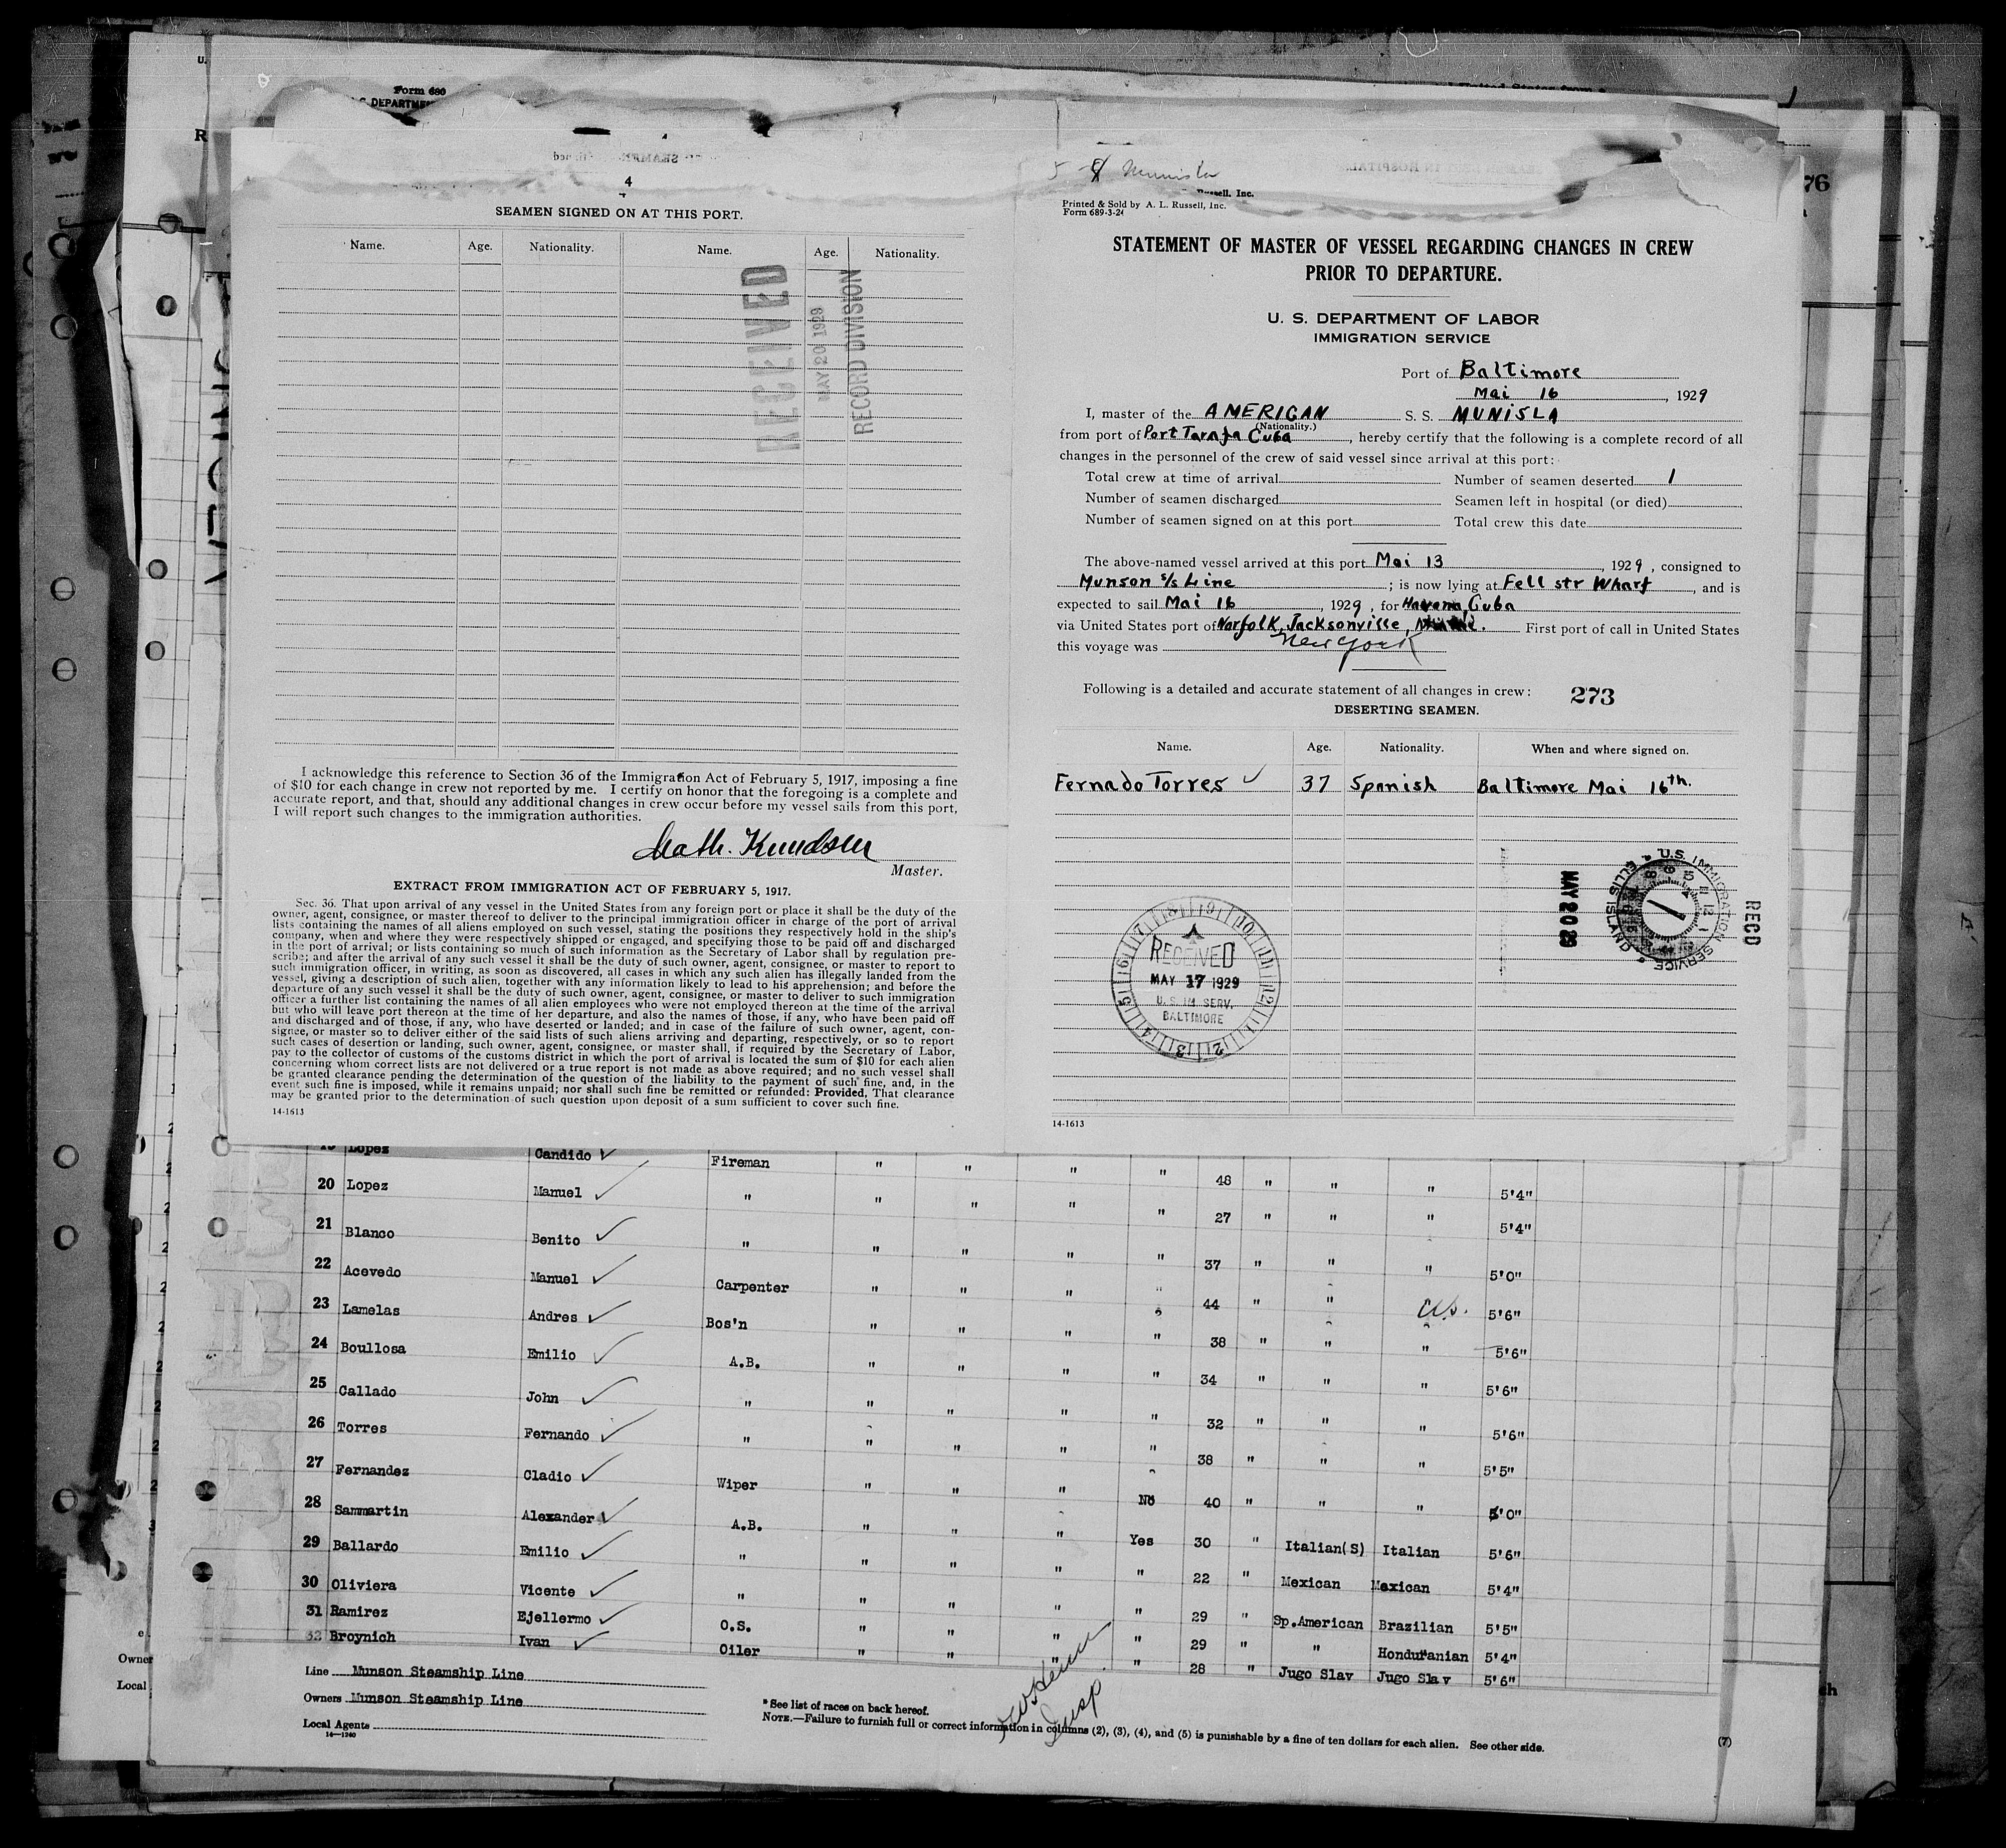 Form 680
4
SEAMEN SIGNED ON AT THIS PORT.
Name. Age. Nationality. Name. Age. Nationality.
RECEIVED
MAY 20 1929
RECORD DIVISION
I acknowledge this reference to Section 36 of the Immigration Act of February 5, 1917, imposing a fine
of $10 for each change in crew not reported by me. I certify on honor that the foregoing is a complete and
accurate report, and that, should any additional changes in crew occur before my vessel sails from this port,
I will report such changes to the immigration authorities.
Math. Knudsen
Master.
EXTRACT FROM IMMIGRATION ACT OF FEBRUARY 5, 1917.
Sec. 36. That upon arrival of any vessel in the United States from any foreign port or place it shall be the duty of the
owner, agent, consignee, or master thereof to deliver to the principal immigration officer in charge of the port of arrival
lists containing the names of all aliens employed on such vessel, stating the positions they respectively hold in the ship's
company, when and where they were respectively shipped or engaged, and specifying those to be paid off and discharged
in the port of arrival; or lists containing so much of such information as the Secretary of Labor shall by regulation pre-
scribe; and after the arrival of any such vessel it shall be the duty of such owner, agent, consignee, or master to report to
such immigration officer, in writing, as soon as discovered, all cases in which any such alien has illegally landed from the
vessel, giving a description of such alien, together with any information likely to lead to his apprehension; and before the
departure of any such vessel it shall be the duty of such owner, agent, consignee, or master to deliver to such immigration
officer a further list containing the names of all alien employees who were not employed thereon at the time of the arrival
but who will leave port thereon at the time of her departure, and also the names of those, if any, who have been paid off
and discharged and of those, if any, who have deserted or landed; and in case of the failure of such owner, agent, con-
signee, or master so to deliver either of the said lists of such aliens arriving and departing, respectively, or so to report
such cases of desertion or landing, such owner, agent, consignee, or master shall, if required by the Secretary of Labor,
pay to the collector of customs of the customs district in which the port of arrival is located the sum of $10 for each alien
concerning whom correct lists are not delivered or a true report is not made as above required; and no such vessel shall
be granted clearance pending the determination of the question of the liability to the payment of such fine, and, in the
event such fine is imposed, while it remains unpaid; nor shall such fine be remitted or refunded: Provided, That clearance
may be granted prior to the determination of such question upon deposit of a sum sufficient to cover such fine.
14-1613
Munisla
Russell, Inc.
Printed & Sold by A. L. Russell, Inc.
Form 689-3-24
STATEMENT OF MASTER OF VESSEL REGARDING CHANGES IN CREW
PRIOR TO DEPARTURE.
U. S. DEPARTMENT OF LABOR
IMMIGRATION SERVICE
Port of Baltimore
Mai 16, 1929
I, master of the AMERICAN S. S. MUNISLA
(Nationality.)
from port of Port Tarafa Cuba, hereby certify that the following is a complete record of all
changes in the personnel of the crew of said vessel since arrival at this port:
Total crew at time of arrival Number of seamen deserted 1
Number of seamen discharged Seamen left in hospital (or died)
Number of seamen signed on at this port Total crew this date
The above-named vessel arrived at this port Mai 13, 1929, consigned to
Munson s/s Line; is now lying at Fell str Wharf, and is
expected to sail Mai 16, 1929, for Havana, Cuba
via United States port of Norfolk, Jacksonville, First port of call in United States
this voyage was New York
Following is a detailed and accurate statement of all changes in crew: 273
DESERTING SEAMEN.
Name. Age. Nationality. When and where signed on.
Fernado Torres ✓ 37 Spanish Baltimore Mai 16th.
RECEIVED
MAY 17 1929
U. S. IM. SERV.
BALTIMORE
MAY 20 29
U.S. IMMIGRATION SERVICE
ELLIS ISLAND
RECD
14-1613
19 Lopez Candido ✓ Fireman " " " "
20 Lopez Manuel ✓ " " " " " 48 " " " 5'4"
21 Blanco Benito ✓ " " " " " 27 " " " 5'4"
22 Acevedo Manuel ✓ Carpenter " " " " 37 " " " 5'0"
23 Lamelas Andres ✓ Bos'n " " " " 44 " " 5'6"
24 Boullosa Emilio ✓ A.B. " " " " 38 " " " 5'6"
25 Callado John ✓ " " " " " 34 " " " 5'6"
26 Torres Fernando ✓ " " " " " 32 " " " 5'6"
27 Fernandez Cladio ✓ Wiper " " " " 38 " " " 5'5"
28 Sammartin Alexander ✓ A.B. " " " No 40 " " " 5'0"
29 Ballardo Emilio ✓ " " " " Yes 30 " Italian(S) Italian 5'6"
30 Oliviera Vicente ✓ " " " " " 22 " Mexican Mexican 5'4"
31 Ramirez Ejellermo ✓ O.S. " " " " 29 " Sp.American Brazilian 5'5"
32 Broynich Ivan ✓ Oiler " " " " 29 " " Honduranian 5'4"
" 28 " Jugo Slav Jugo Slav 5'6"
Line Munson Steamship Line
Owners Munson Steamship Line
Local Agents
14-1240
Insp.
* See list of races on back hereof.
NOTE.—Failure to furnish full or correct information in columns (2), (3), (4), and (5) is punishable by a fine of ten dollars for each alien. See other side.
(7)